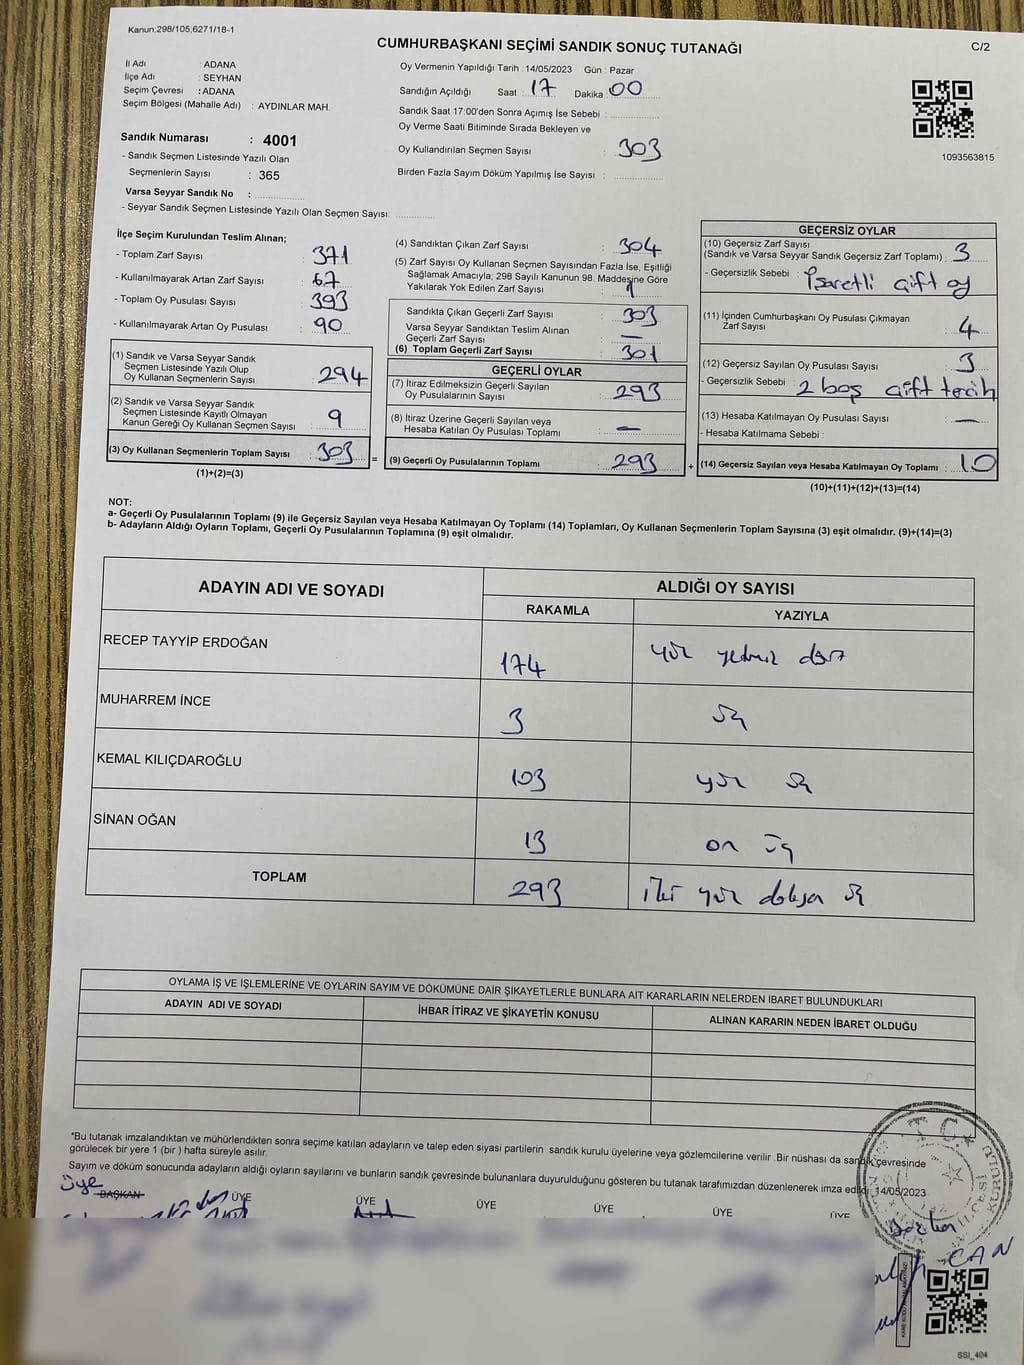 Kanun:298/105,6271/18-1
CUMHURBAŞKANI SEÇİMİ SANDIK SONUÇ TUTANAĞI
C/2
İl Adı : ADANA
İlçe Adı : SEYHAN
Seçim Çevresi : ADANA
Seçim Bölgesi (Mahalle Adı) : AYDINLAR MAH.
Oy Vermenin Yapıldığı Tarih : 14/05/2023 Gün : Pazar
Sandığın Açıldığı Saat : 17 Dakika : 00
Sandık Saat 17:00'den Sonra Açımış İse Sebebi :
Oy Verme Saati Bitiminde Sırada Bekleyen ve
Oy Kullandırılan Seçmen Sayısı : 303
Birden Fazla Sayım Döküm Yapılmış İse Sayısı :
1093563815
Sandık Numarası : 4001
- Sandık Seçmen Listesinde Yazılı Olan
Seçmenlerin Sayısı : 365
Varsa Seyyar Sandık No :
- Seyyar Sandık Seçmen Listesinde Yazılı Olan Seçmen Sayısı:
İlçe Seçim Kurulundan Teslim Alınan;
- Toplam Zarf Sayısı : 371
- Kullanılmayarak Artan Zarf Sayısı : 67
- Toplam Oy Pusulası Sayısı : 393
- Kullanılmayarak Artan Oy Pusulası : 90
(1) Sandık ve Varsa Seyyar Sandık
Seçmen Listesinde Yazılı Olup
Oy Kullanan Seçmenlerin Sayısı : 294
(2) Sandık ve Varsa Seyyar Sandık
Seçmen Listesinde Kayıtlı Olmayan
Kanun Gereği Oy Kullanan Seçmen Sayısı : 9
(3) Oy Kullanan Seçmenlerin Toplam Sayısı : 303
(1)+(2)=(3)
(4) Sandıktan Çıkan Zarf Sayısı : 304
(5) Zarf Sayısı Oy Kullanan Seçmen Sayısından Fazla İse, Eşitliği
Sağlamak Amacıyla, 298 Sayılı Kanunun 98. Maddesine Göre
Yakılarak Yok Edilen Zarf Sayısı : 1
Sandıkta Çıkan Geçerli Zarf Sayısı : 303
Varsa Seyyar Sandıktan Teslim Alınan
Geçerli Zarf Sayısı : —
(6) Toplam Geçerli Zarf Sayısı : 301
GEÇERLİ OYLAR
(7) İtiraz Edilmeksizin Geçerli Sayılan
Oy Pusulalarının Sayısı : 293
(8) İtiraz Üzerine Geçerli Sayılan veya
Hesaba Katılan Oy Pusulası Toplamı : —
= (9) Geçerli Oy Pusulalarının Toplamı : 293 +
GEÇERSİZ OYLAR
(10) Geçersiz Zarf Sayısı
(Sandık ve Varsa Seyyar Sandık Geçersiz Zarf Toplamı) : 3
- Geçersizlik Sebebi : İşaretli çift oy
(11) İçinden Cumhurbaşkanı Oy Pusulası Çıkmayan
Zarf Sayısı : 4
(12) Geçersiz Sayılan Oy Pusulası Sayısı : 3
- Geçersizlik Sebebi : 2 boş çift tercih
(13) Hesaba Katılmayan Oy Pusulası Sayısı : —
- Hesaba Katılmama Sebebi :
(14) Geçersiz Sayılan veya Hesaba Katılmayan Oy Toplamı : 10
(10)+(11)+(12)+(13)=(14)
NOT:
a- Geçerli Oy Pusulalarının Toplamı (9) ile Geçersiz Sayılan veya Hesaba Katılmayan Oy Toplamı (14) Toplamları, Oy Kullanan Seçmenlerin Toplam Sayısına (3) eşit olmalıdır. (9)+(14)=(3)
b- Adayların Aldığı Oyların Toplamı, Geçerli Oy Pusulalarının Toplamına (9) eşit olmalıdır.
ADAYIN ADI VE SOYADI
ALDIĞI OY SAYISI
RAKAMLA YAZIYLA
RECEP TAYYİP ERDOĞAN 174 yüz yetmiş dört
MUHARREM İNCE 3 üç
KEMAL KILIÇDAROĞLU 103 yüz üç
SİNAN OĞAN 13 on üç
TOPLAM 293 iki yüz doksan üç
OYLAMA İŞ VE İŞLEMLERİNE VE OYLARIN SAYIM VE DÖKÜMÜNE DAİR ŞİKAYETLERLE BUNLARA AİT KARARLARIN NELERDEN İBARET BULUNDUKLARI
ADAYIN ADI VE SOYADI İHBAR İTİRAZ VE ŞİKAYETİN KONUSU ALINAN KARARIN NEDEN İBARET OLDUĞU
*Bu tutanak imzalandıktan ve mühürlendikten sonra seçime katılan adayların ve talep eden siyasi partilerin sandık kurulu üyelerine veya gözlemcilerine verilir .Bir nüshası da sandık çevresinde
görülecek bir yere 1 (bir ) hafta süreyle asılır.
Sayım ve döküm sonucunda adayların aldığı oyların sayılarını ve bunların sandık çevresinde bulunanlara duyurulduğunu gösteren bu tutanak tarafımızdan düzenlenerek imza edildi. 14/05/2023
üye
BAŞKAN ÜYE ÜYE ÜYE ÜYE ÜYE ÜYE
T.C.
CAN
SSI_404